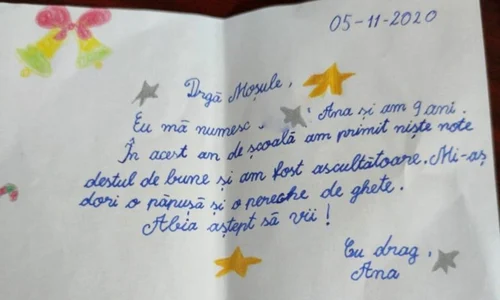 05-11-2020
Drgă Moșule,
Eu mă numesc Ana și am 9 ani.
În acest an de școală am primit niște note
destul de bune și am fost ascultătoare. Mi-aș
dori o păpușă și o pereche de ghete.
Abia aștept să vii!
Cu drag,
Ana